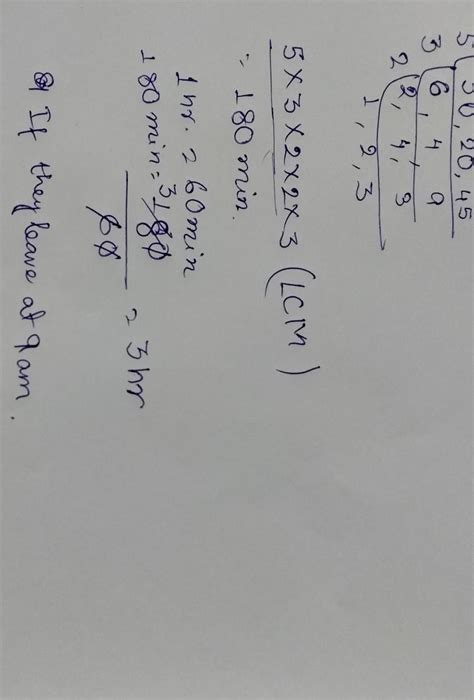 5 30, 20, 45
3 6, 4 9
2 2, 4, 3
1, 2, 3
5 X 3 X 2 X 2 X 3 (LCM)
= 180 min.
1 hr. = 60 min
180 min = 3 180 / 60 = 3 hr
If they leave at 9 am.